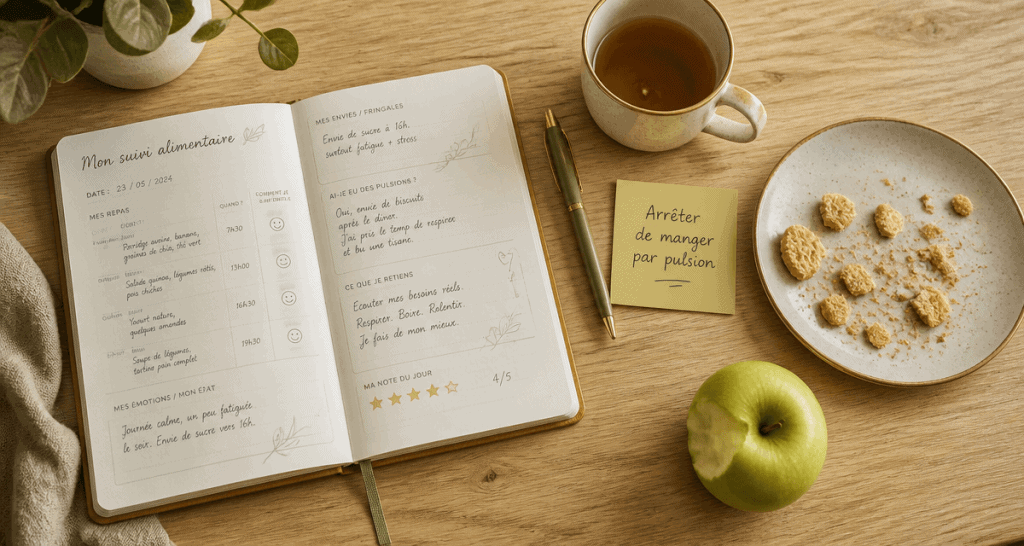 Mon suivi alimentaire
DATE : 23 / 05 / 2024
MES REPAS
QUAND ?
COMMENT JE
Porridge avoine, banane,
graines de chia, thé vert
7h30
Salade quinoa, légumes rôtis,
pois chiches
13h00
Yaourt nature,
quelques amandes
16h30
Soupe de légumes,
tartine pain complet
19h30
MES ÉMOTIONS / MON ÉTAT
Journée calme, un peu fatiguée
le soir. Envie de sucre vers 16h.
MES ENVIES / FRINGALES
Envie de sucre à 16h,
surtout fatigue + stress
AI-JE EU DES PULSIONS ?
Oui, envie de biscuits
après le dîner.
J'ai pris le temps de respirer
et bu une tisane.
CE QUE JE RETIENS
Écouter mes besoins réels.
Respirer. Boire. Ralentir.
Je fais de mon mieux.
MA NOTE DU JOUR
4/5
Arrêter
de manger
par pulsion